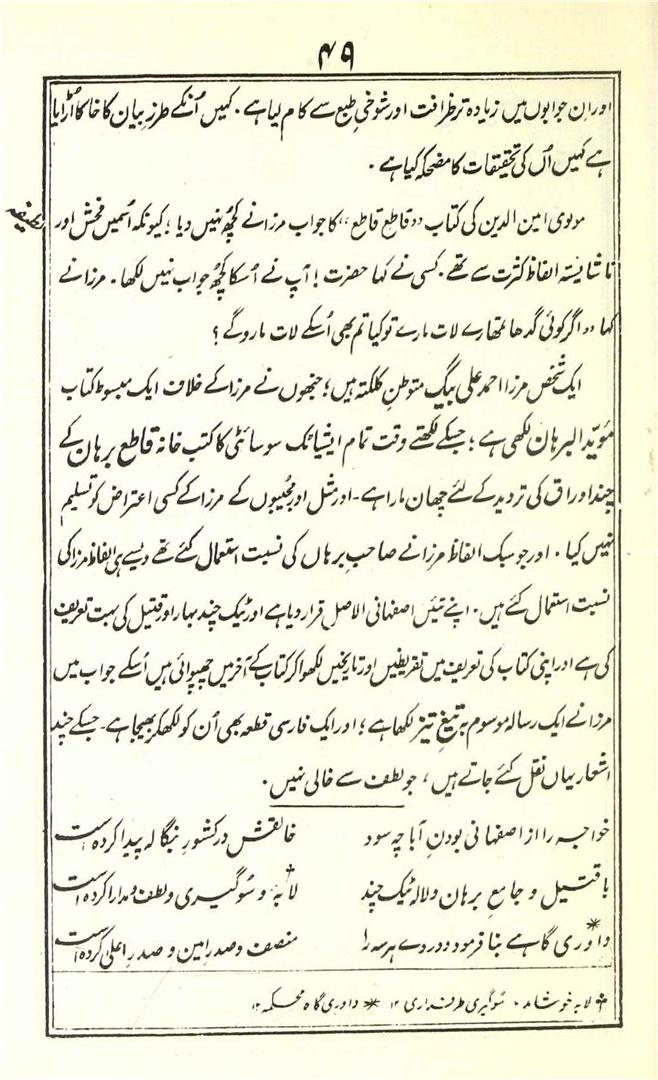 ۴۹
اور ان جوابوں میں زیادہ تر ظرافت اور شوخیِ طبع سے کام لیا ہے۔ کہیں اُنکے طرزِ بیان کا خاکا اُڑایا
ہے کہیں اُن کی تحقیقات کا مضحکہ کیا ہے۔
مولوی امین الدین کی کتاب "قاطع قاطع" کا جواب مرزا نے کچھ نہیں دیا؛ کیونکہ اُسمیں فحش اور
لطیفہ
ناشایستہ الفاظ کثرت سے تھے۔ کسی نے کہا حضرت! آپ نے اُسکا کچھ جواب نہیں لکھا۔ مرزا نے
کہا "اگر کوئی گدھا تمھارے لات مارے تو کیا تم بھی اُسکے لات مارو گے؟
ایک شخص مرزا احمد علی بیگ متوطنِ کلکتہ ہیں؛ جنھوں نے مرزا کے خلاف ایک مبسوط کتاب
مویّد البرہان لکھی ہے؛ جسکے لکھتے وقت تمام ایشیاٹک سوسائٹی کا کتب خانہ قاطع برہان کے
چند اوراق کی تردید کے لئے چھان مارا ہے۔ اور مثل اور مجیبوں کے مرزا کے کسی اعتراض کو تسلیم
نہیں کیا۔ اور جو سبک الفاظ مرزا نے صاحبِ برہان کی نسبت استعمال کئے تھے ویسے ہی الفاظ مرزا کی
نسبت استعمال کئے ہیں۔ اپنے تئیں اصفہانی الاصل قرار دیا ہے اور ٹیک چند بہار اور قتیل کی بہت تعریف
کی ہے اور اپنی کتاب کی تعریف میں تقریظیں اور تاریخیں لکھوا کر کتاب کے آخر میں چھپوائی ہیں اُسکے جواب میں
مرزا نے ایک رسالہ موسوم بہ تیغِ تیز لکھا ہے؛ اور ایک فارسی قطعہ بھی اُن کو لکھکر بھیجا ہے۔ جسکے چند
اشعار یہاں نقل کئے جاتے ہیں، جو لطف سے خالی نہیں۔
خواجہ را از اصفہانی بودنِ آبا چہ سود خالقش در کشورِ بنگالہ پیدا کردہ است
با قتیل و جامعِ برہان و لالہ ٹیک چند لابہ† و سُوگیری و لطف و مدارا کردہ است
داوری گاہے* بنا فرمود و در وے ہر سہ را منصف و صدرِ امین و صدرِ اعلی کردہ است
† لابہ خوشامد۔ سُوگیری طرفداری ۱۲ * داوری گاہ محکمہ ۱۲